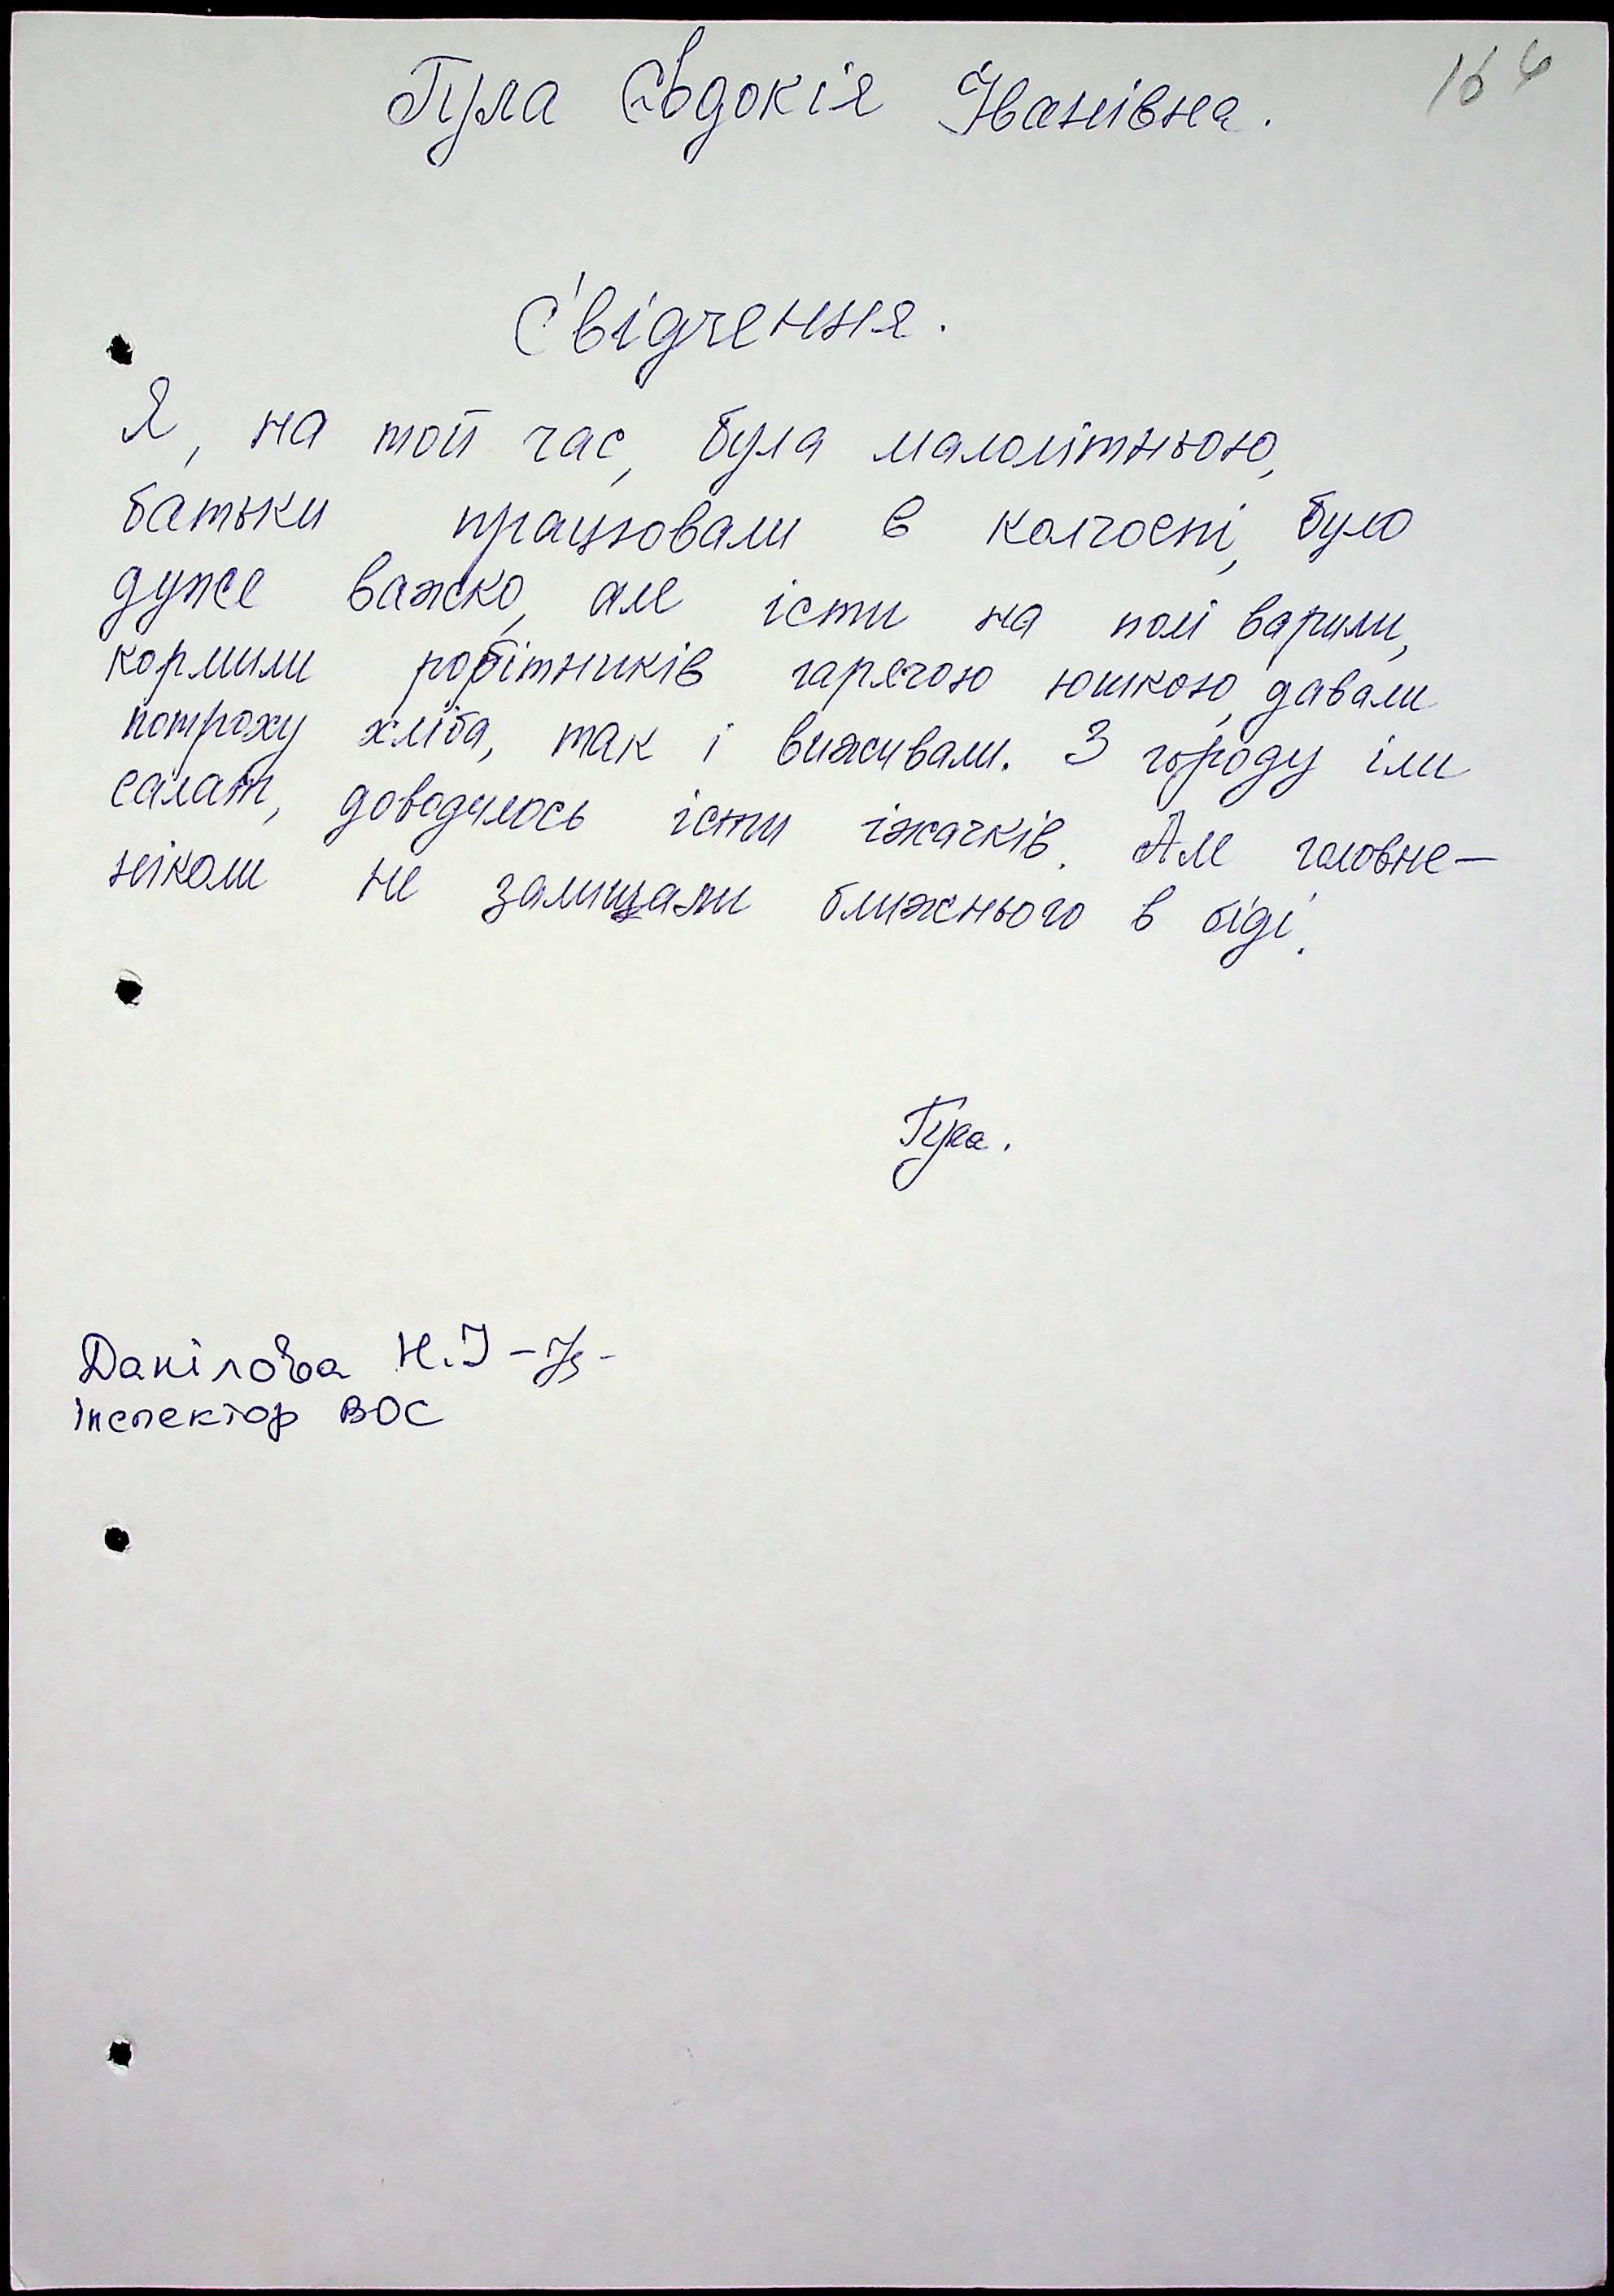 166
Гула Євдокія Іванівна.
Свідчення.
Я, на той час, була малолітньою,
батьки працювали в колгоспі, було
дуже важко, але їсти на полі варили,
кормили робітників гарячою юшкою, давали
потроху хліба, так і виживали. З городу їли
салат, доводилось їсти їжачків. Але головне—
ніколи не залишали ближнього в біді.
Гула.
Данілова Н.І
інспектор ВОС